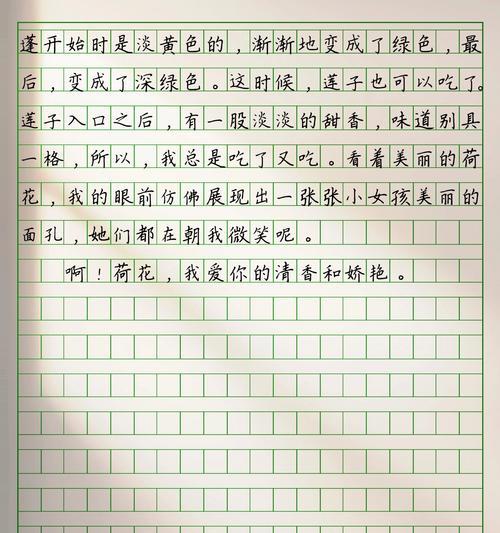 蓬开始时是淡黄色的，渐渐地变成了绿色，最
后，变成了深绿色。这时候，莲子也可以吃了。
莲子入口之后，有一股淡淡的甜香，味道别具
一格，所以，我总是吃了又吃。看着美丽的荷
花，我的眼前仿佛展现出一张张小女孩美丽的
面孔，她们都在朝我微笑呢。
啊！荷花，我爱你的清香和娇艳。